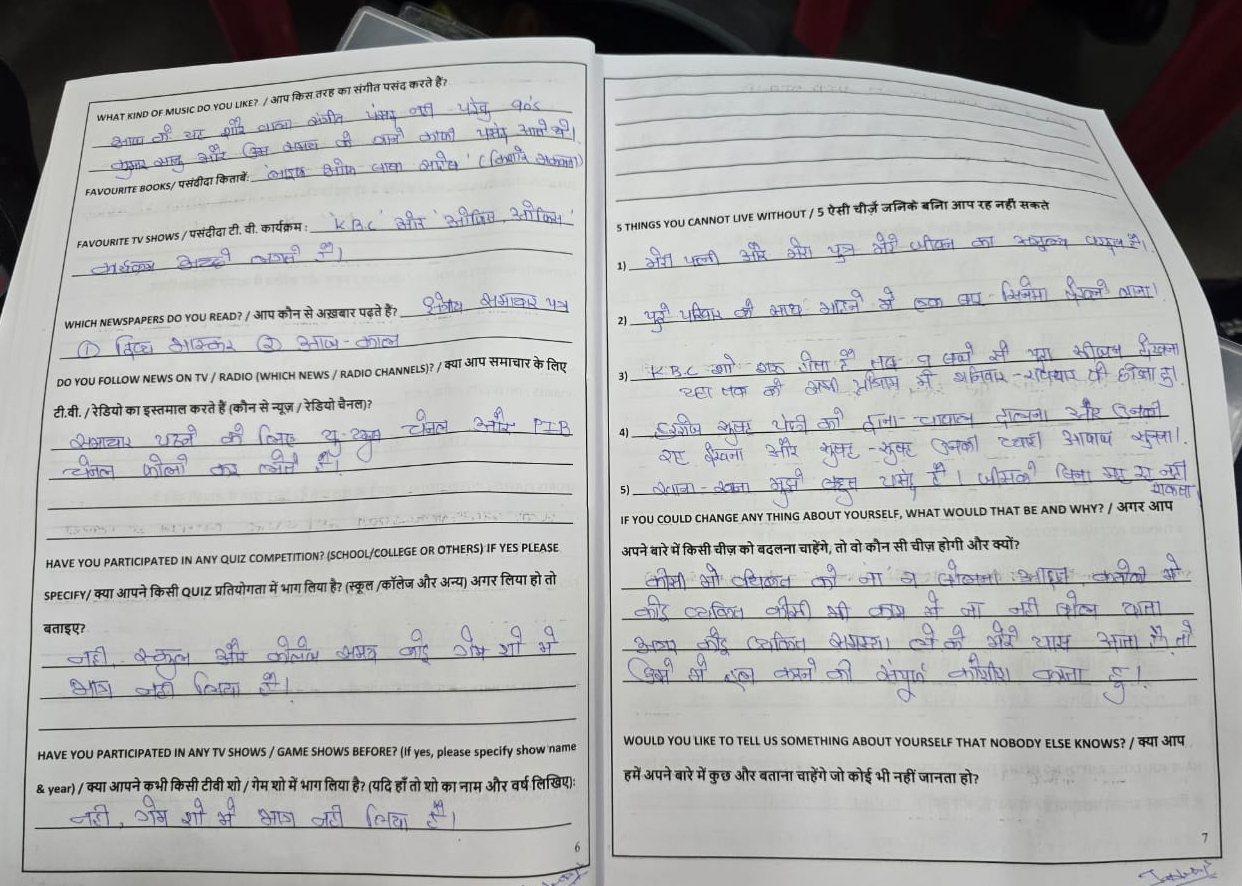 WHAT KIND OF MUSIC DO YOU LIKE? / आप किस तरह का संगीत पसंद करते हैं?
आज की यह शोर वाला संगीत पंसद नही परंतु 90's
कुमार सानु और उस समय के गाने काफी पसंद आते थे।
FAVOURITE BOOKS/ पसंदीदा किताबें:
FAVOURITE TV SHOWS / पसंदीदा टी. वी. कार्यक्रम : 'K.B.C' और
कार्यक्रम अच्छे लगते है।
WHICH NEWSPAPERS DO YOU READ? / आप कौन से अख़बार पढ़ते हैं? समाचार पत्र
① दिव्य भास्कर ② आज-काल
DO YOU FOLLOW NEWS ON TV / RADIO (WHICH NEWS / RADIO CHANNELS)? / क्या आप समाचार के लिए
टी.वी. / रेडियो का इस्तमाल करते हैं (कौन से न्यूज़ / रेडियो चैनल)?
समाचार पढने के लिए यु-ट्युब चेनल और PIB
चेनल फोलो कर लेते है।
HAVE YOU PARTICIPATED IN ANY QUIZ COMPETITION? (SCHOOL/COLLEGE OR OTHERS) IF YES PLEASE
SPECIFY/ क्या आपने किसी QUIZ प्रतियोगता में भाग लिया है? (स्कूल /कॉलेज और अन्य) अगर लिया हो तो
बताइए?
नही, स्कुल और कोलेज समय कोई गेम शो मे
भाग नही लिया है।
HAVE YOU PARTICIPATED IN ANY TV SHOWS / GAME SHOWS BEFORE? (If yes, please specify show name
& year) / क्या आपने कभी किसी टीवी शो / गेम शो में भाग लिया है? (यदि हाँ तो शो का नाम और वर्ष लिखिए):
नही, गेम शो मे भाग नही लिया है।
6
5 THINGS YOU CANNOT LIVE WITHOUT / 5 ऐसी चीज़ें जनिके बनिा आप रह नहीं सकते
1) मेरी पत्नी और मेरा पुत्र मेरे जीवन का अमुल्य
2) पुरे परिवार के साथ महिने मे एक बार सिनेमा देखने जाना।
3) K.B.C शो शरु होता है तब
शनिवार-रविवार
4) सुबह पंछी को दाना- डालना और उनको
देखना और सुबह-सुबह उनकी प्यारी आवाज सुनना।
5) खाना-खाना मुझे बहुत पसंद है। जीसके बिना रह नही
शकता
IF YOU COULD CHANGE ANY THING ABOUT YOURSELF, WHAT WOULD THAT BE AND WHY? / अगर आप
अपने बारे में किसी चीज़ को बदलना चाहेंगे, तो वो कौन सी चीज़ होगी और क्यों?
कीसी भी व्यकित को ना बोलना
कोइ व्यकित कीसी भी काम मे ना नही बोल पाता
अगर कोइ व्यकित समस्या लेके मेरे पास आता है तो
उसे मे हल करने की संपूर्ण कोशीश करता हु।
WOULD YOU LIKE TO TELL US SOMETHING ABOUT YOURSELF THAT NOBODY ELSE KNOWS? / क्या आप
हमें अपने बारे में कुछ और बताना चाहेंगे जो कोई भी नहीं जानता हो?
7